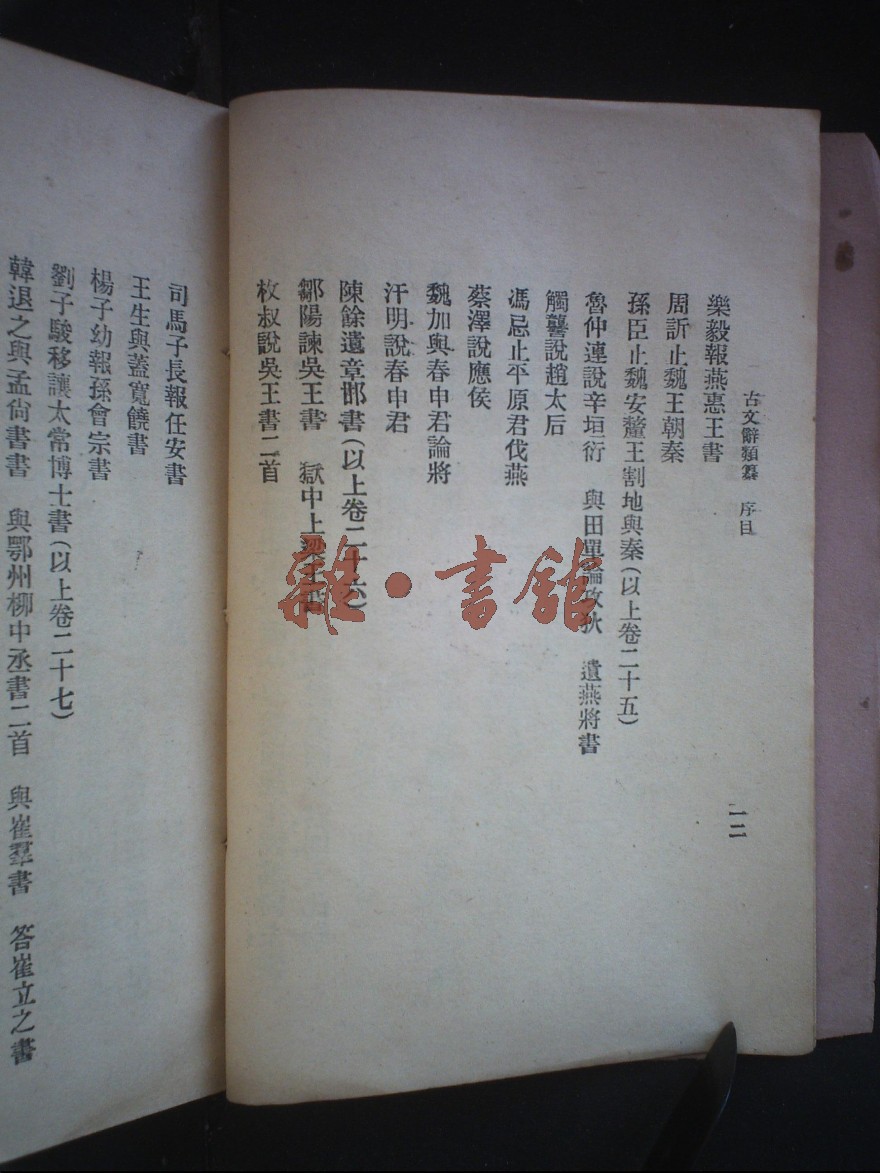 古文辭類纂 序目
一二
樂毅報燕惠王書
周訢止魏王朝秦
孫臣止魏安釐王割地與秦(以上卷二十五)
魯仲連說辛垣衍 與田單論攻狄 遺燕將書
觸讋說趙太后
馮忌止平原君伐燕
蔡澤說應侯
魏加與春申君論將
汗明說春申君
陳餘遺章邯書(以上卷二十六)
鄒陽諫吳王書 獄中上梁王書
枚叔說吳王書二首
司馬子長報任安書
王生與蓋寬饒書
楊子幼報孫會宗書
劉子駿移讓太常博士書(以上卷二十七)
韓退之與孟尙書書 與鄂州柳中丞書二首 與崔羣書 答崔立之書
雜·書館